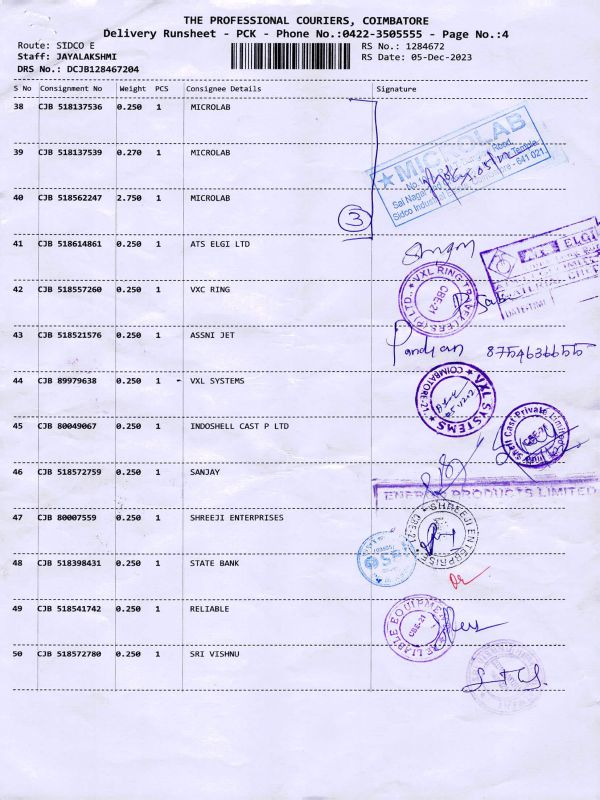 THE PROFESSIONAL COURIERS, COIMBATORE
Delivery Runsheet - PCK - Phone No.:0422-3505555 - Page No.:4
Route: SIDCO E
RS No.: 1284672
Staff: JAYALAKSHMI
RS Date: 05-Dec-2023
DRS No.: DCJB128467204
S No Consignment No Weight PCS Consignee Details Signature
38 CJB 518137536 0.250 1 MICROLAB
39 CJB 518137539 0.270 1 MICROLAB
MICROLAB
Sidco Industrial - 641 021
40 CJB 518562247 2.750 1 MICROLAB
3
41 CJB 518614861 0.250 1 ATS ELGI LTD
ELGI
42 CJB 518557260 0.250 1 VXC RING
VXL RING TRAVELLERS (P) LTD.
CBE-21
43 CJB 518521576 0.250 1 ASSNI JET
Pandian 8754636655
44 CJB 89979638 0.250 1 - VXL SYSTEMS
VXL SYSTEMS
COIMBATORE-21
45 CJB 80049067 0.250 1 INDOSHELL CAST P LTD
Shell Cast Private Limited
CBE-21
46 CJB 518572759 0.250 1 SANJAY
PRODUCTS LIMITED
47 CJB 80007559 0.250 1 SHREEJI ENTERPRISES
SHREEJI ENTERPRISE
CBE-21
48 CJB 518398431 0.250 1 STATE BANK
49 CJB 518541742 0.250 1 RELIABLE
RELIABLE EQUIPMENT
CBE-21
50 CJB 518572780 0.250 1 SRI VISHNU